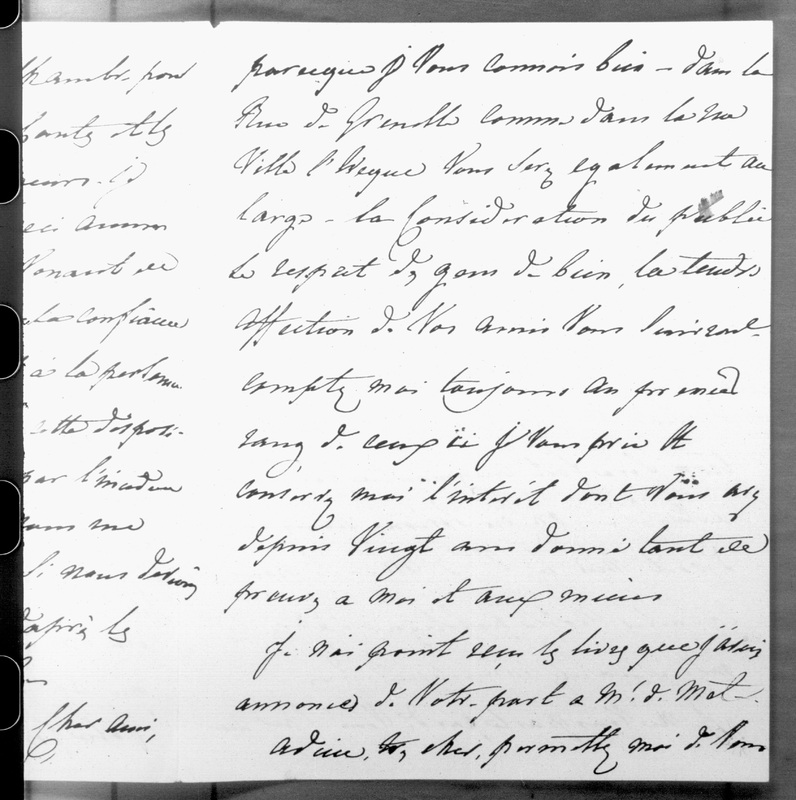 chambre pour
hautes et les
ceci
venant de
la confiance
à la personne
cette disposi-
par l'inadver
vous me
si nous devions
d'après les
Cher ami,
parceque je vous connois bien - dans la
Rue de Grenelle comme dans la rue
Ville l'Eveque vous serez egalement au
large - la Consideration du public
le respect des gens de bien, la tendre
affection de vos amis vous suivront -
comptez moi toujours au premier
rang de ceux ci je vous prie et
conservez moi l'interêt dont vous avez
depuis vingt ans donné tant de
preuves a moi et aux miens
je n'ai point reçu les livres que j'avois
annoncés de votre part a Mr. de Met-
adieu, très cher, permettez moi de vous